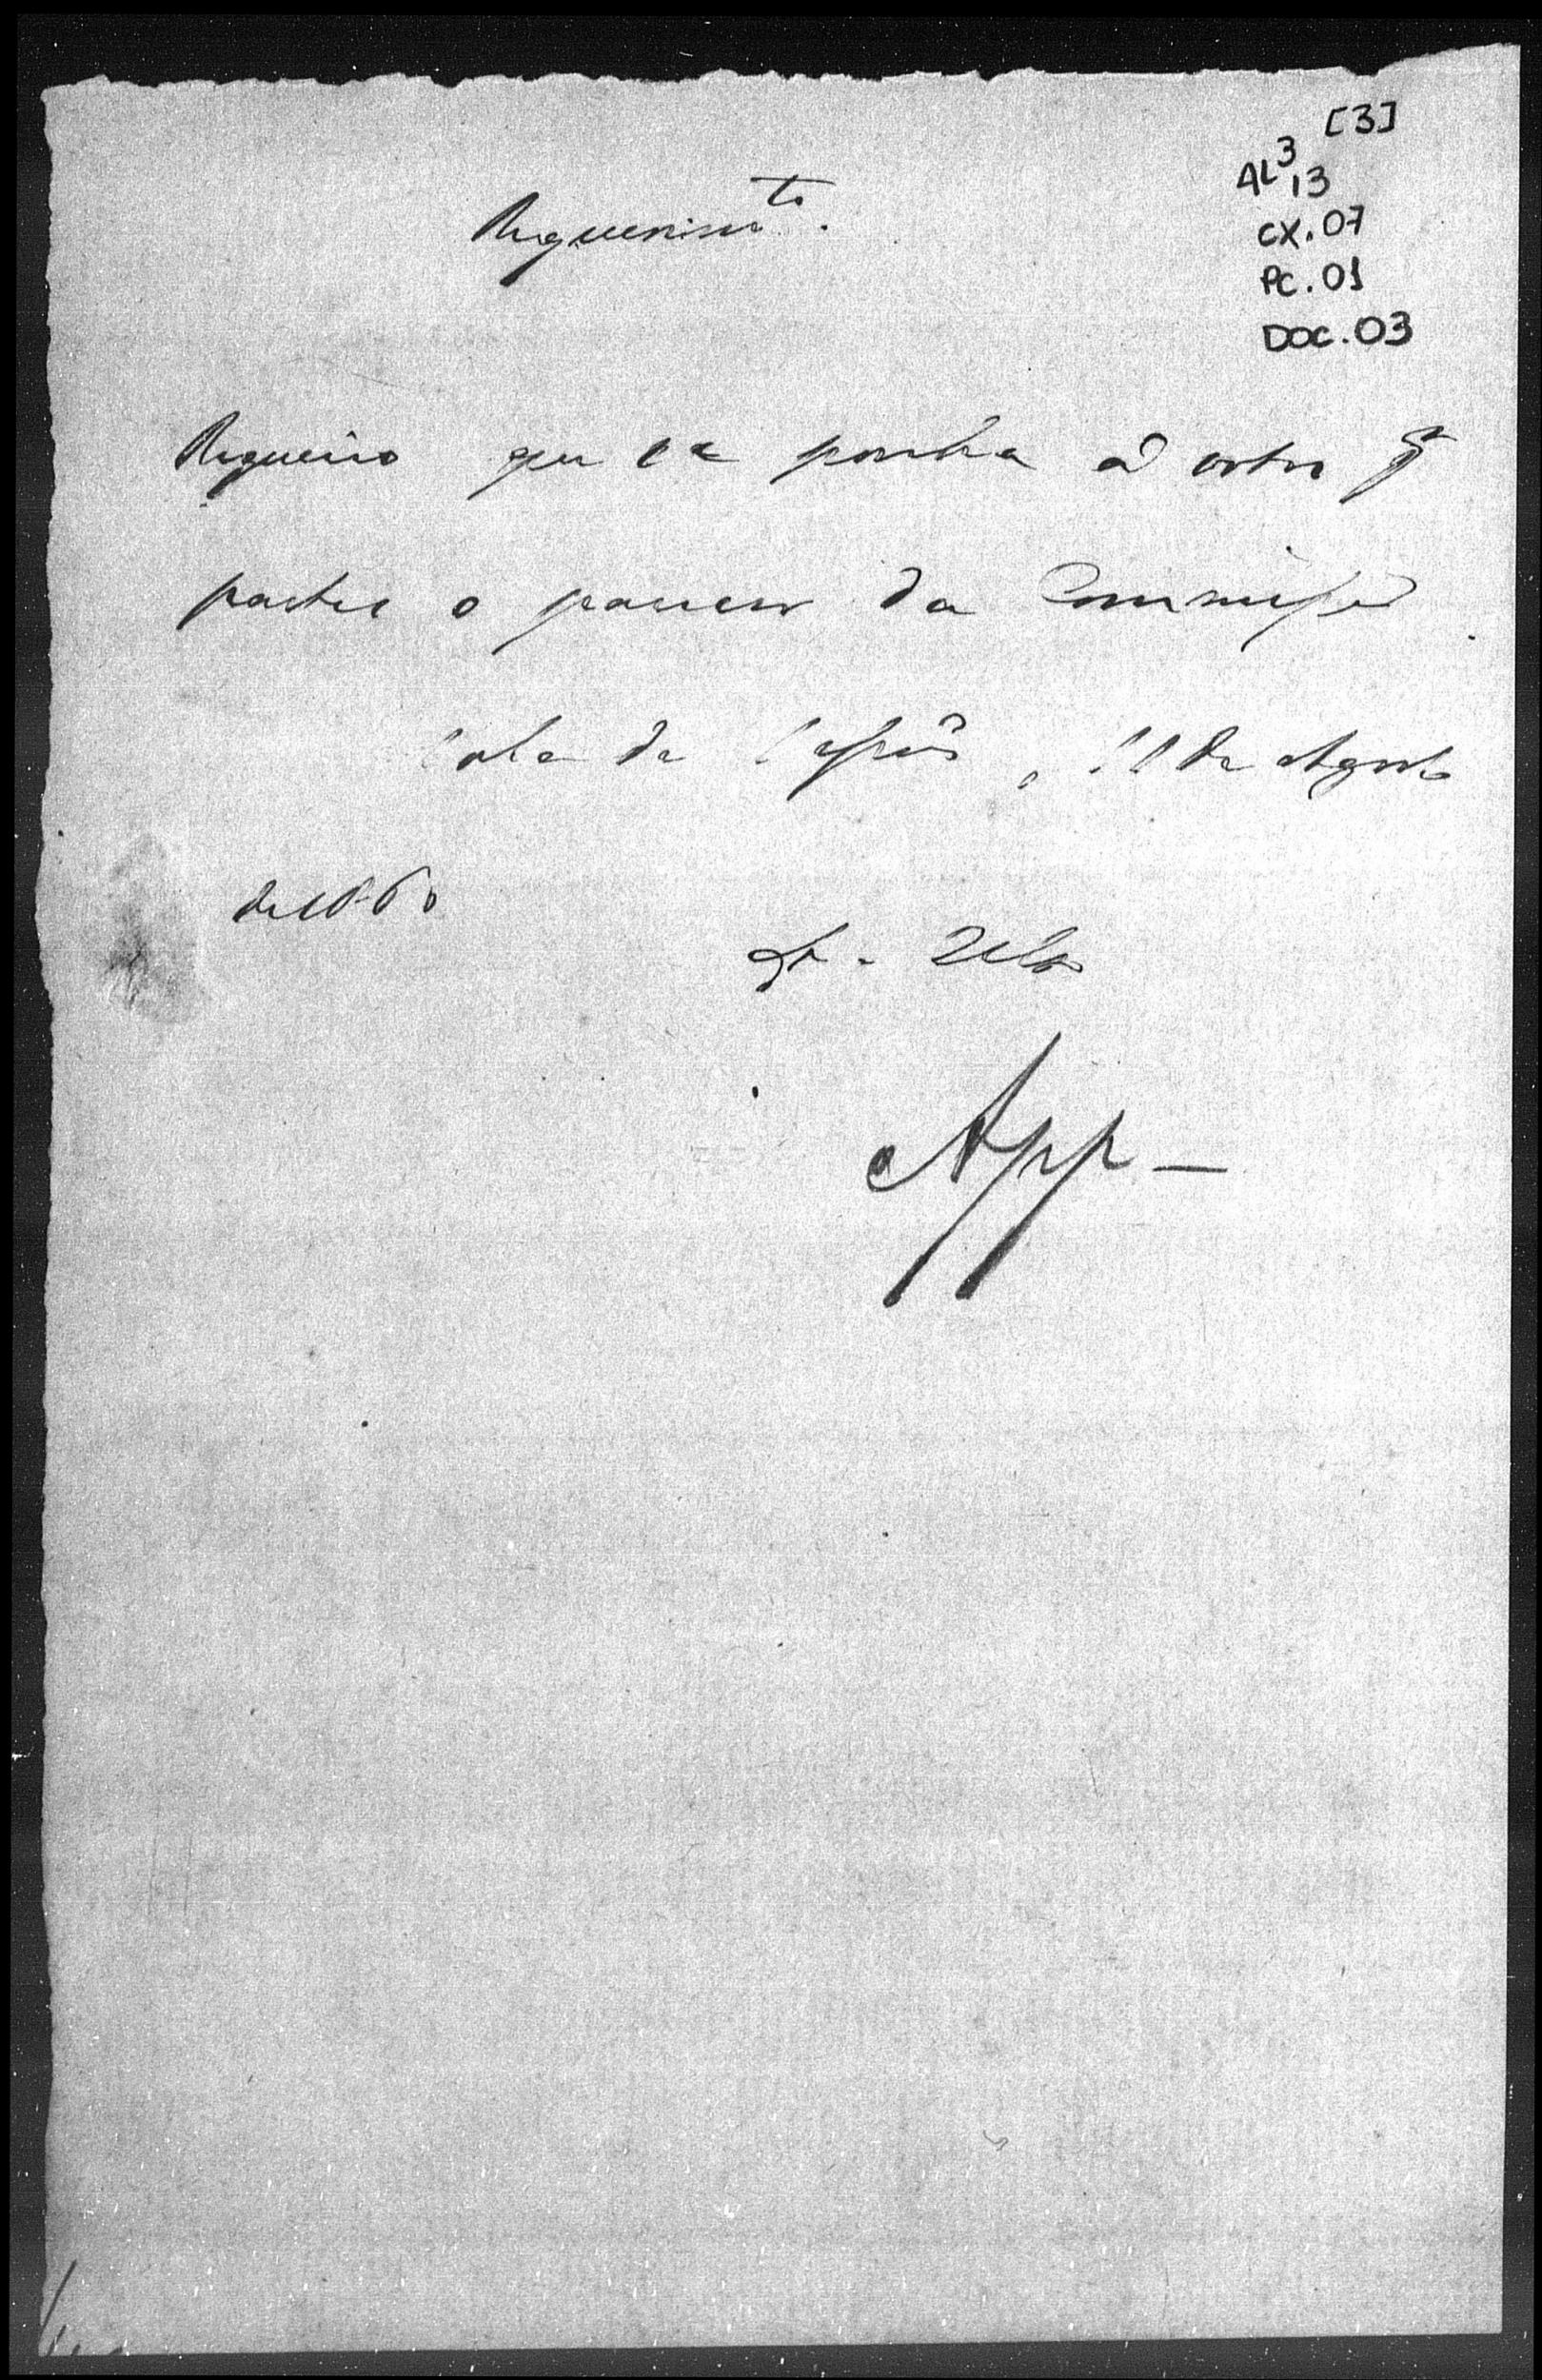 [3]
AL³ 13
CX.07
PC.01
DOC.03
Requerimto.
Requeiro que se ponha
o parecer da Commissão
Sala da Sessões, de Agosto
de 1860
App—